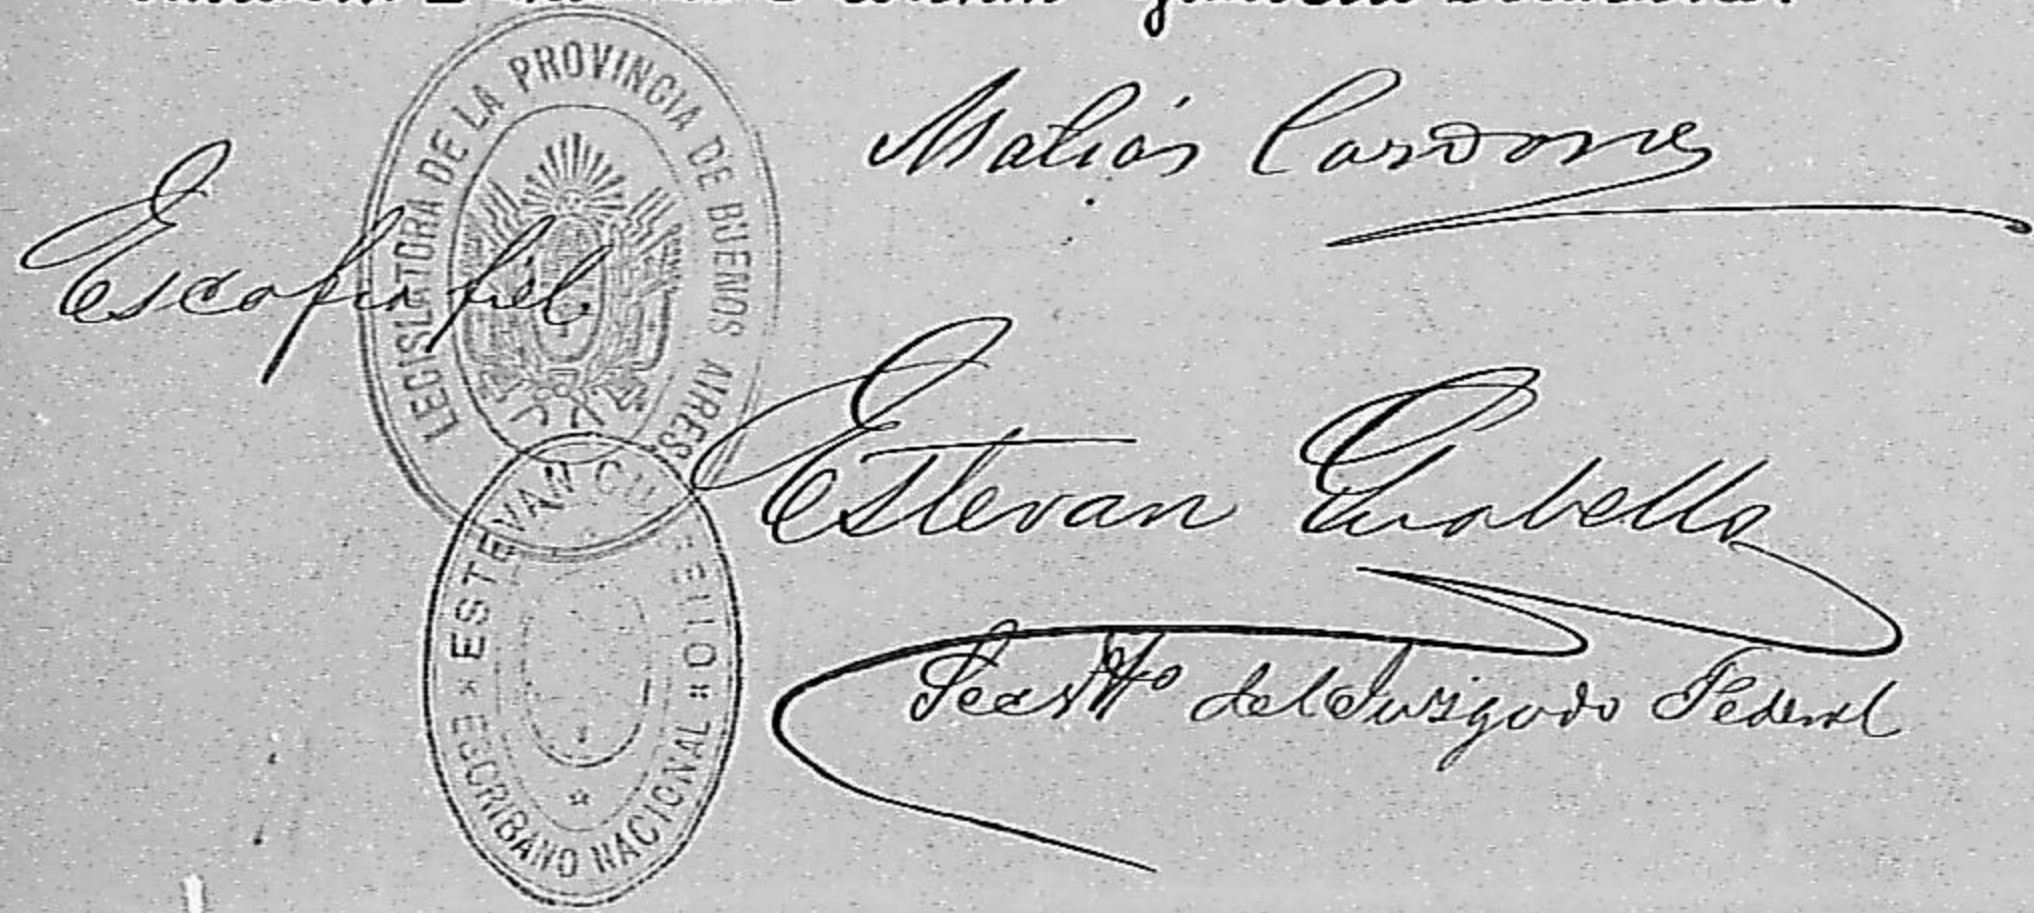 LEGISLATORA DE LA PROVINCIA DE BUENOS AIRES
Matías Cardone
Es copia fiel
Estevan
ESTEVAN
ESCRIBANO NACIONAL
Secrtº del Juzgado Federal